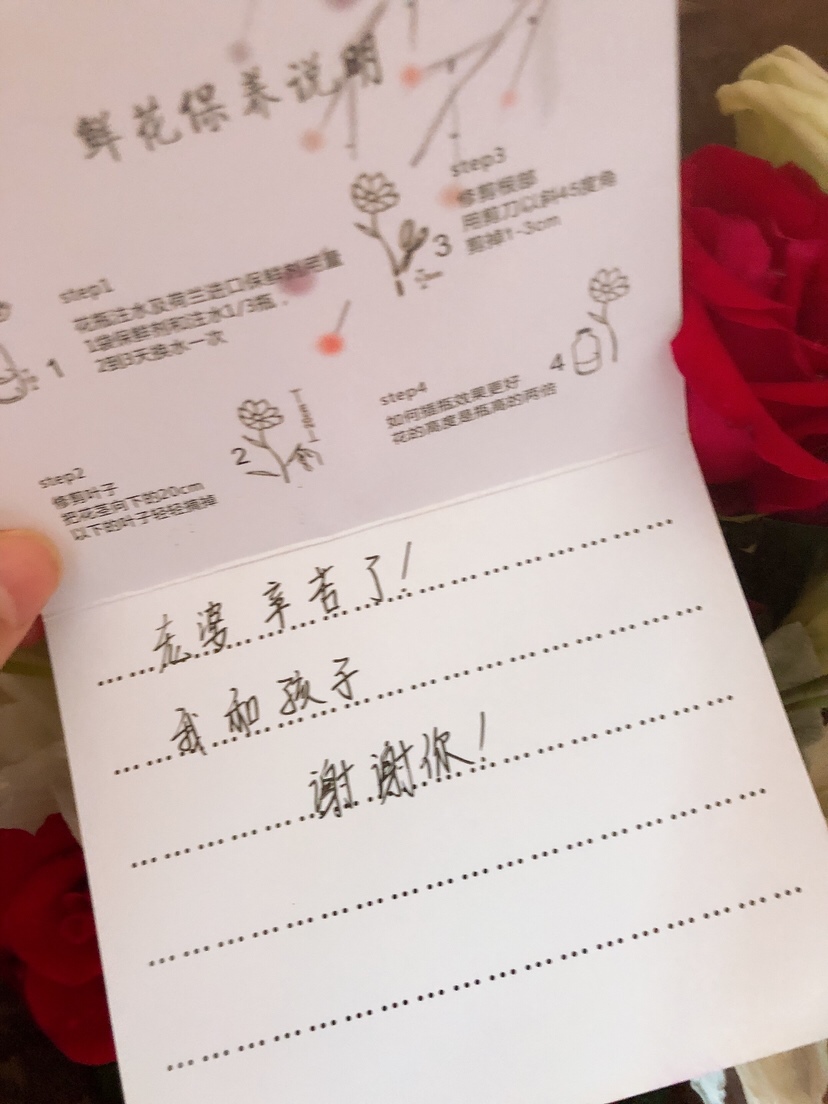 鲜花保养说明
step1
花瓶注水及荷兰进口保鲜剂用量
1袋保鲜剂和注水1/3瓶.
2到3天换水一次
1
step3
修剪根部
用剪刀以斜45度角
剪掉1-3cm
3
step2
修剪叶子
把花茎向下的20cm
以下的叶子轻轻摘掉
2
step4
如何插瓶效果更好
花的高度是瓶高的两倍
4
老婆 辛苦了!
我和孩子
谢谢你!